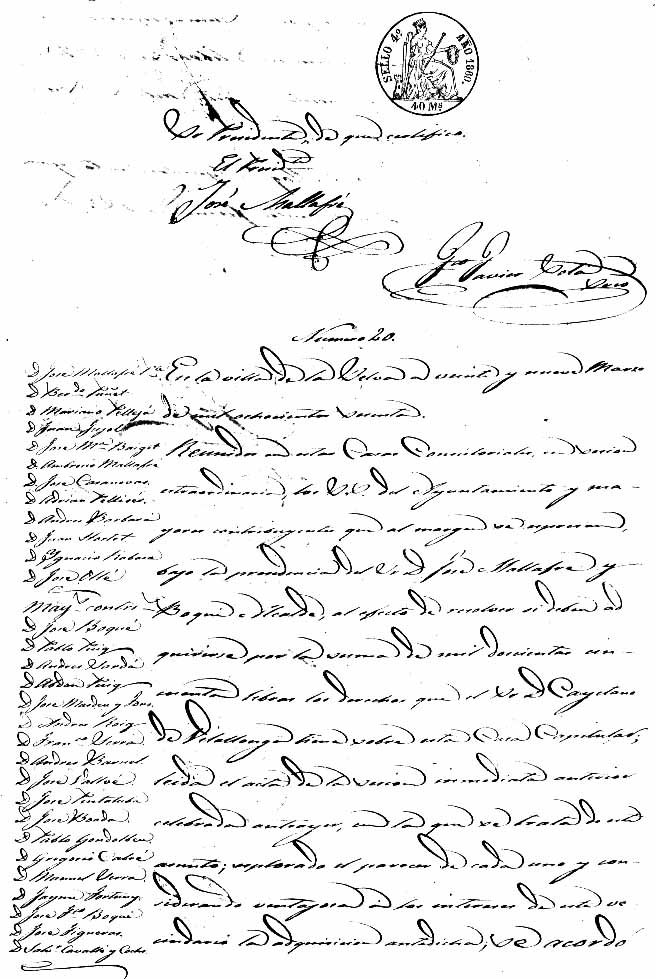 SELLO 4º AÑO 1860.
40 Ms
Sr Presidente, de que certifico.
El Presidte
José Mallafré
Javier Sola
Numero 20.
D José Mallafré
D Mariano Pellejá
D Juan
D José Mª Barget
D Antonio Mallafré
D José Casanovas
D Adrian Pellicer
D Andres Barbará
D Juan
D Ignacio
D José Ollé
Mayˢ contribˢ
D José Boqué
D Pablo Puig
D Andres
D Puig
D José
D Roig
D Franco Serra
D Andres
D José
D José Fontaleba
D José
D Pablo
D Gregorio
D Manuel Serra
D Jayme Fortuny
D José Fco Boqué
D José Figueras
D Salvr Cavallé y
En la villa de la Selva a veinte y nueve Marzo
de mil ochocientos sesenta.
Reunidos en estas Casas Consistoriales, en sesion
extraordinaria, los S.S. del Ayuntamiento y ma-
yores contribuyentes que al margen se espresan,
bajo la presidencia del Sr D José Mallafré y
Boqué Alcalde, al efecto de resolver si deben ad
quirirse por la suma de mil doscientas cin-
cuenta libras los derechos que el Sr D Cayetano
de Vilallonga tiene sobre esta Casa Capitular;
leida el acta de la sesion inmediata anterior
celebrada anteayer, en la que se trata de este
asunto; esplorado el parecer de cada uno y con-
siderando ventajosa a los intereses de este ve
cindario la adquisicion antedicha; se acordó